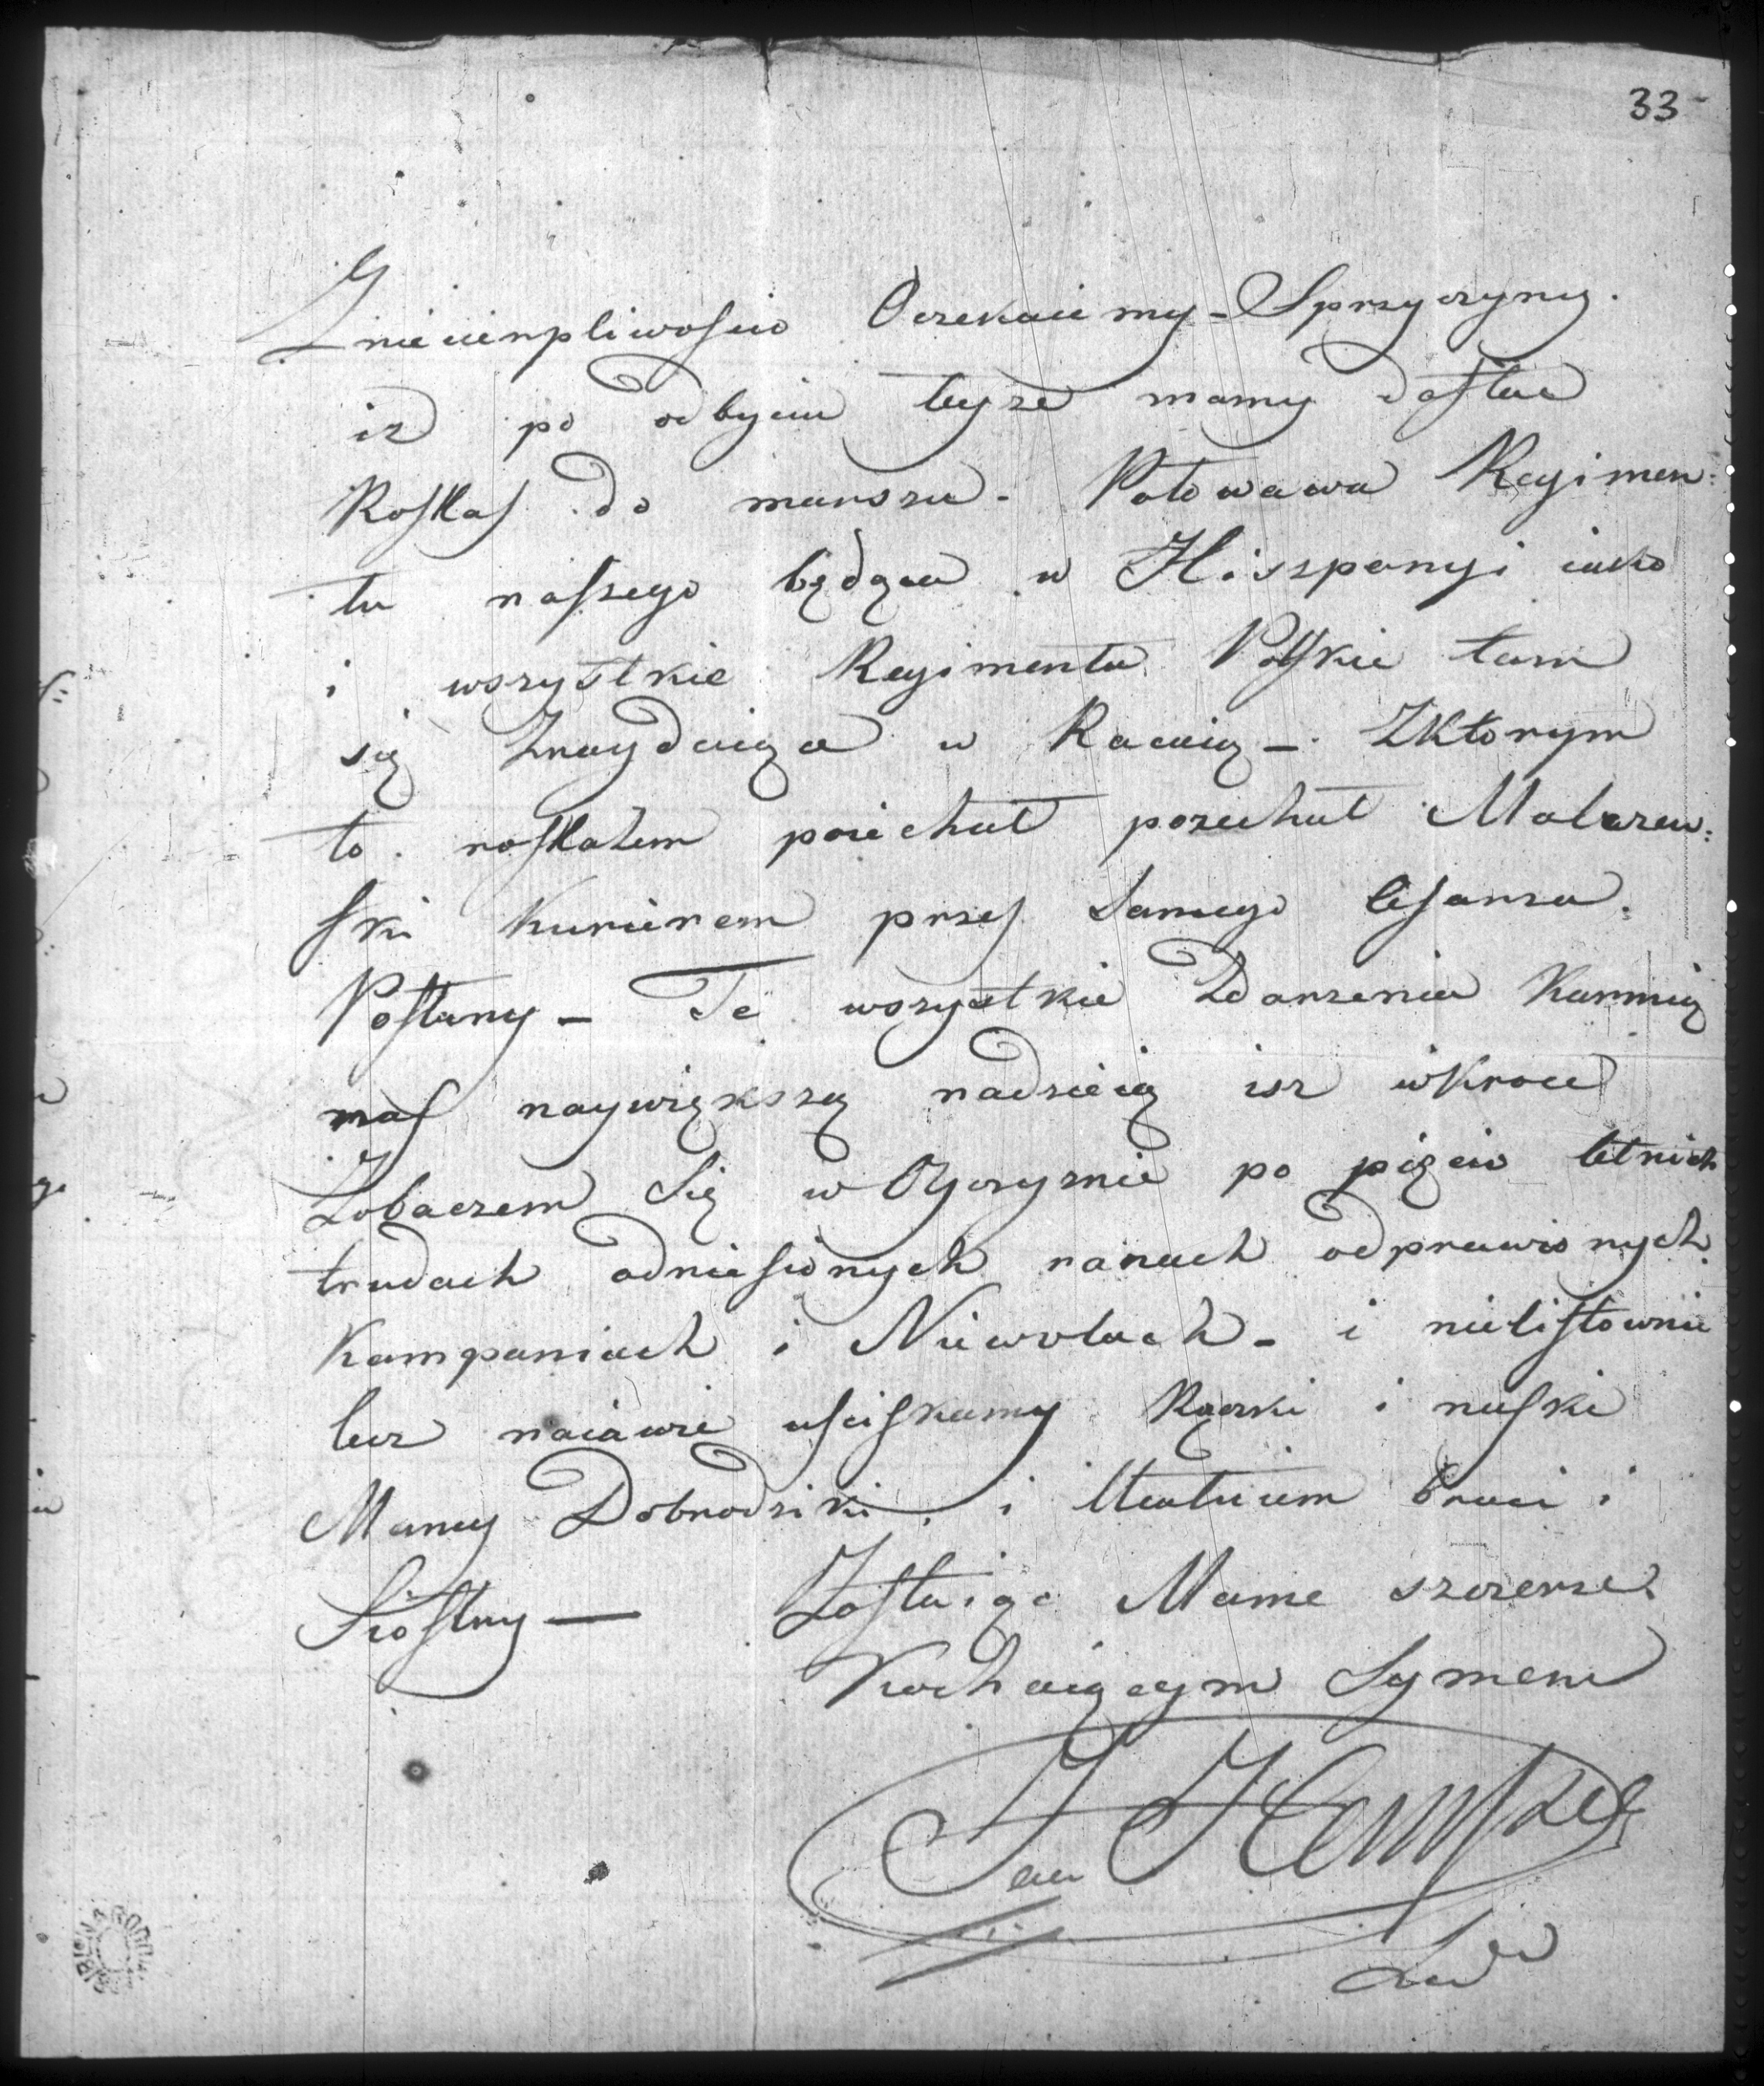 33
Zniecierpliwoscio Oczekaiemy - Sprzyczyny.
iz po odbyciu teyze mamy dostac
Roskas do marszu. Polowawa Regimen:
tu naszego będąca w Hiszpanyi iako
i wszystkie Regimenta Polskie tam
się Znaydaiąca w Racaią - Zktorym
to roskazem poiechał poiechał Malczew:
ski Kurierem przes Samego Cesarza.
Posłany - Te wszystkie Zdarzenia Karmią
nas naywiększą nadzieią isz wkroce
Zobaczem Się w Oyczyznie po pięcio letnich
trudach odniesionych ranach odprawionych
Kampaniach i Niewolach - i nielistownie
lecz naiawie usciskamy Rączki i nuski
Mamy Dobrodziki, i braci i
Siostry — Zostaiąc Mame szczerze
Kochaiącym Synem
Jan